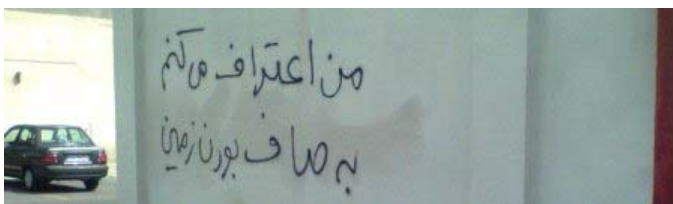 من اعتراف می کنم
به صاف بودن زمین